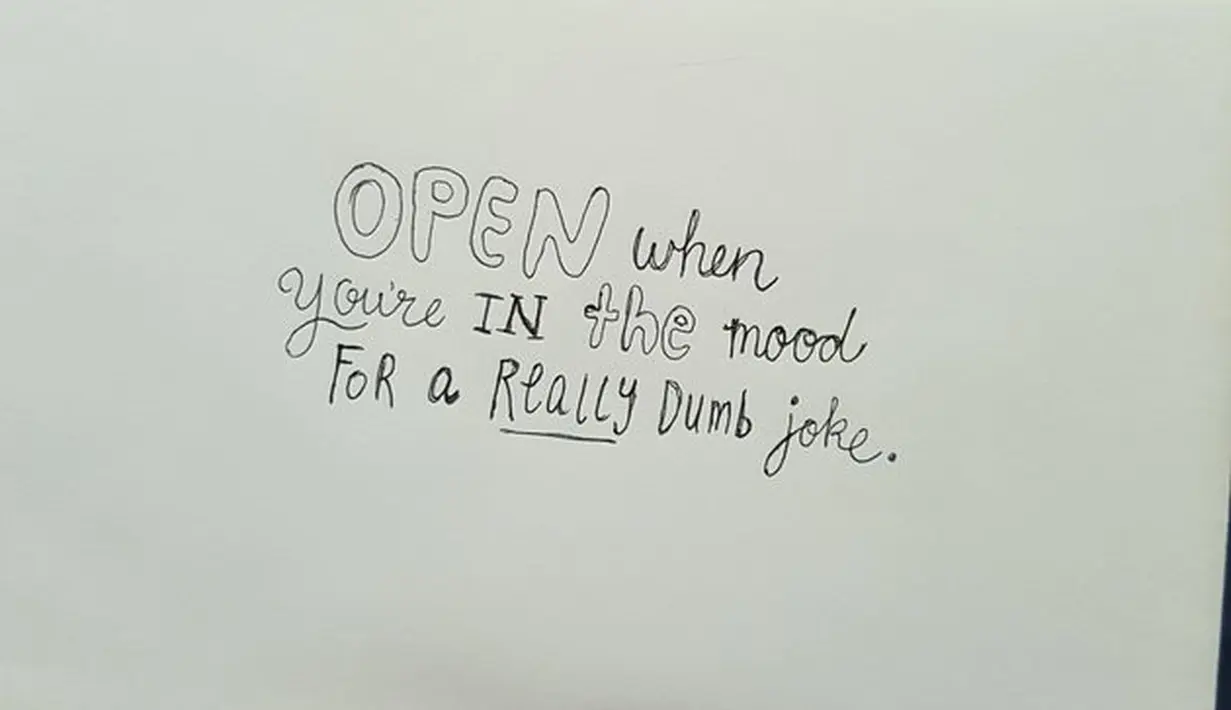 OPEN when
you're IN the mood
FOR a ReaLLy Dumb joke.